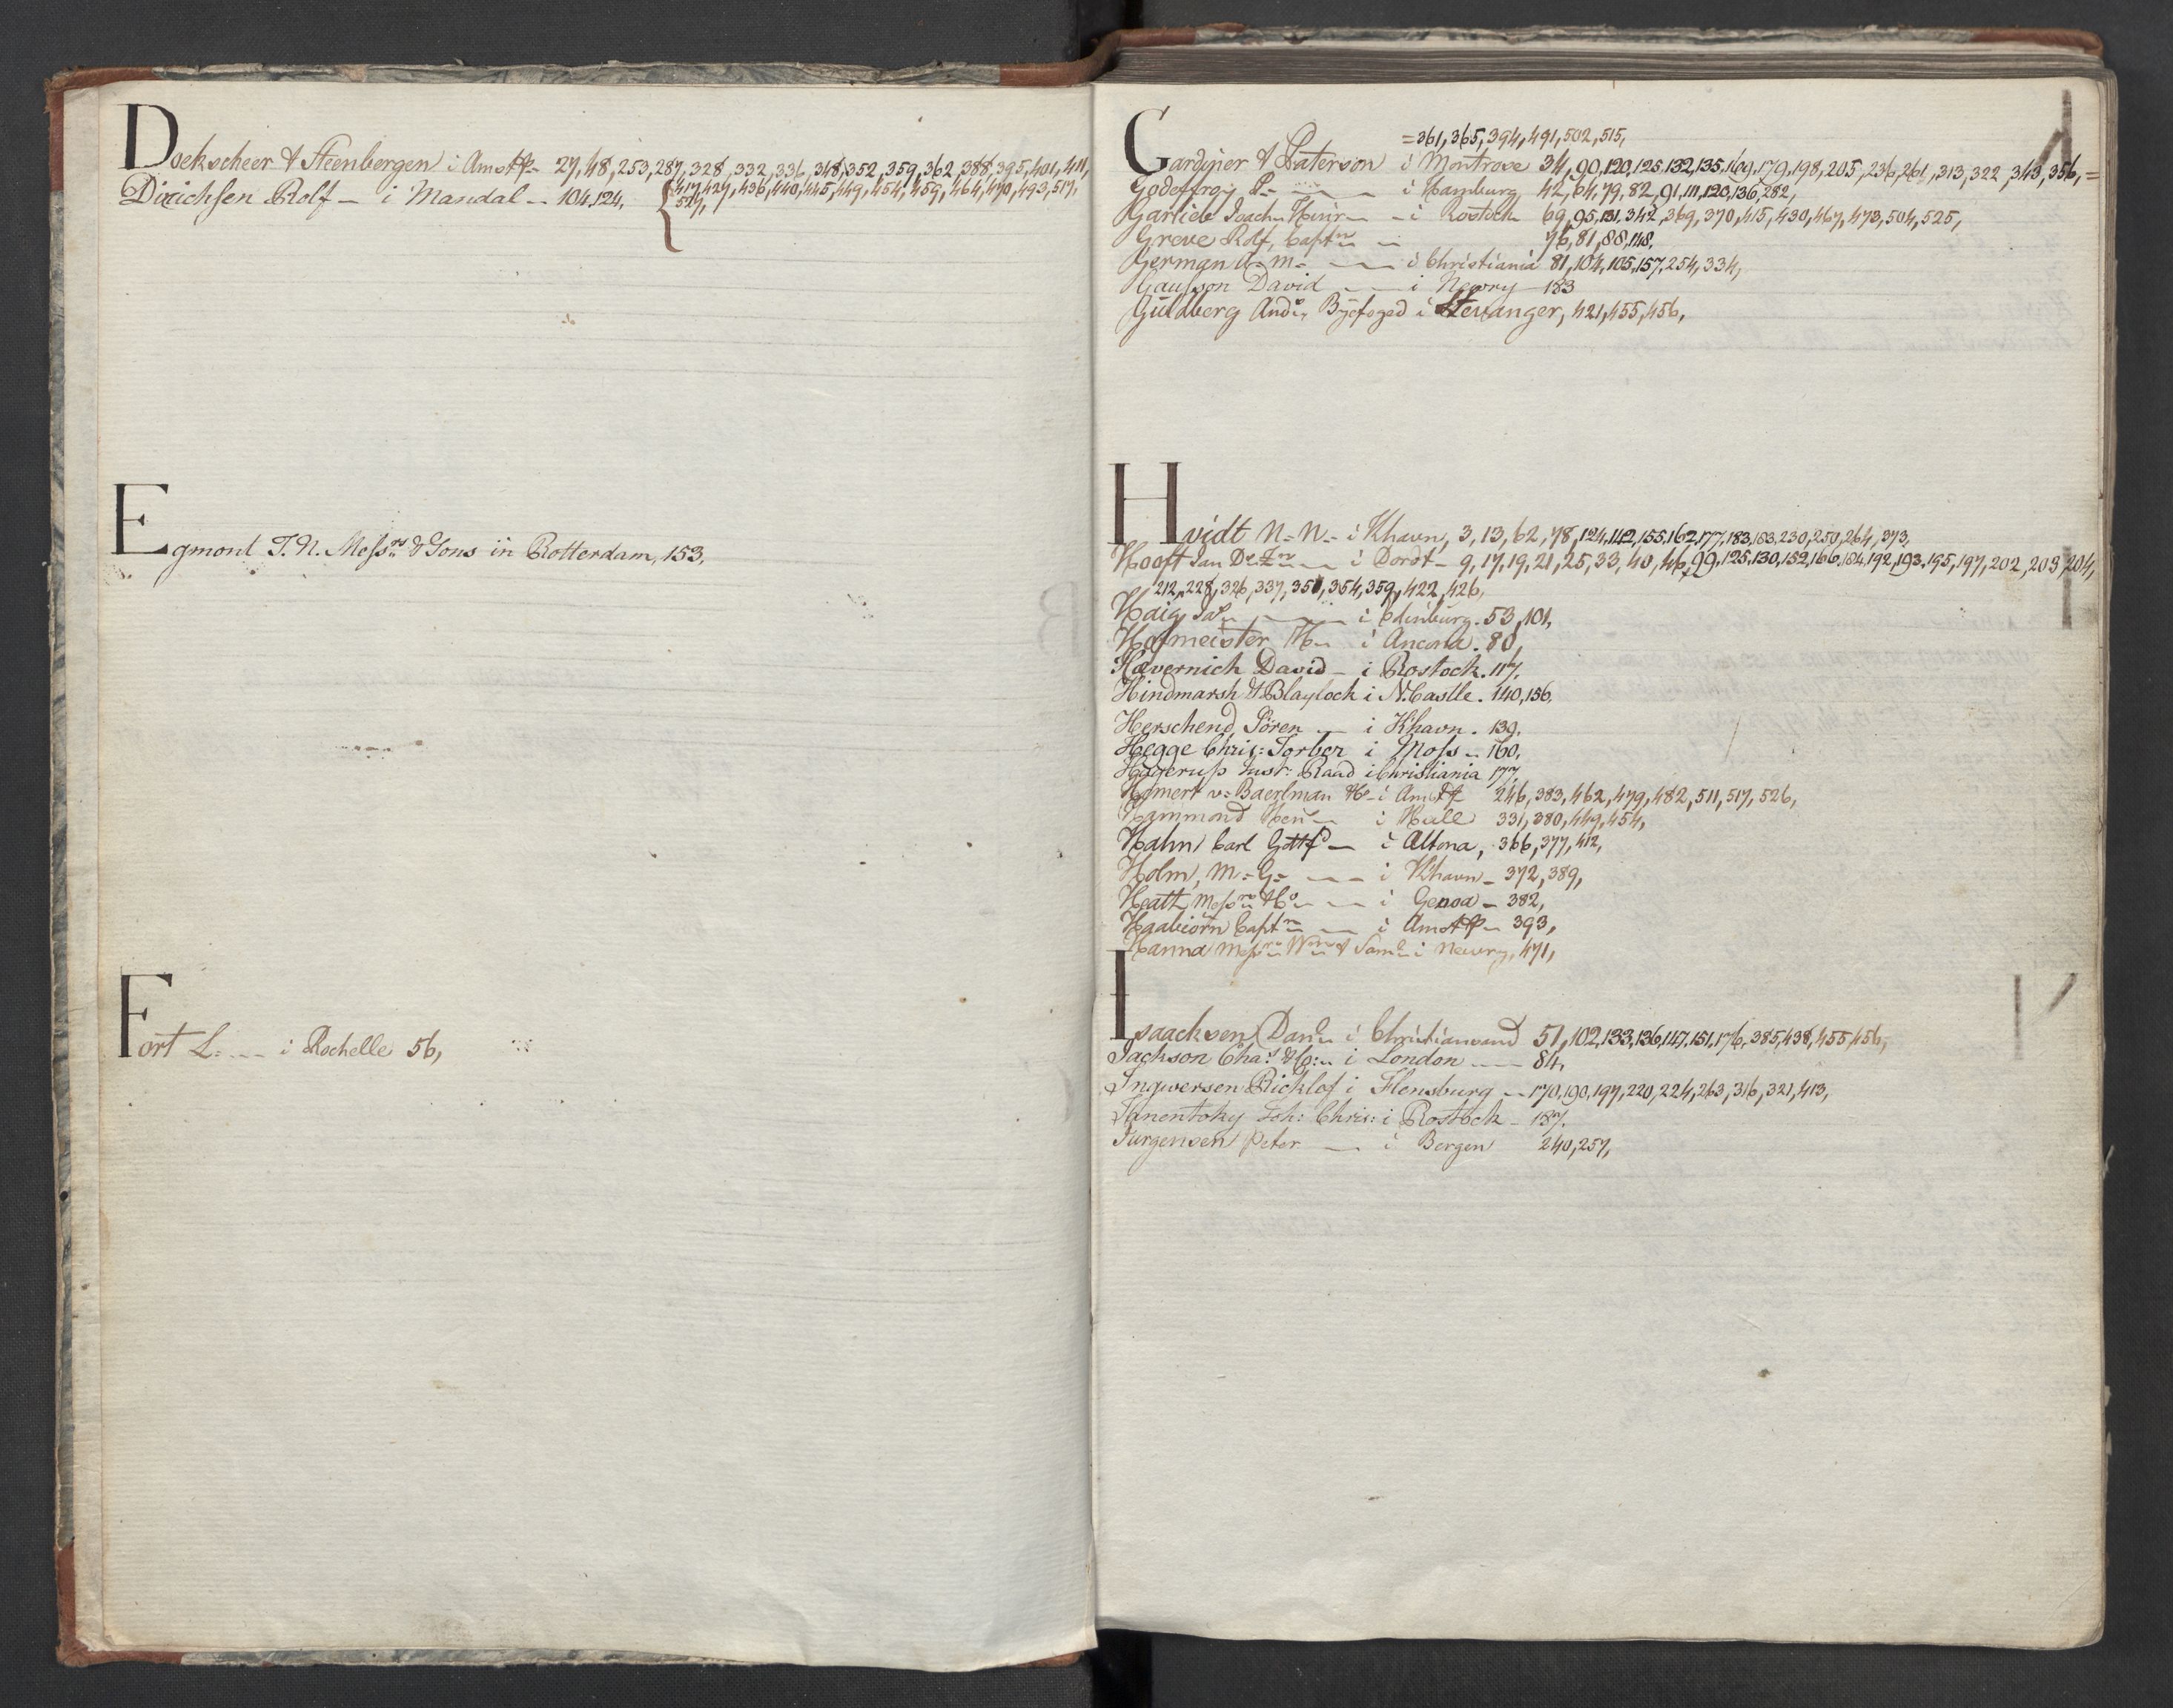 Doekscheer & Steenbergen i Amst 27, 48, 253, 287, 328, 332, 336, 348, 352, 359, 362, 388, 395, 401, 411,
Dirichsen Rolf - i Mandal - 104, 124. { 417, 427, 436, 440, 445, 449, 454, 459, 464, 470, 493, 517,
527,
Egmont J. N. Messrs & Sons in Rotterdam, 153.
Fort L. - i Rochelle 56,
= 361, 365, 394, 491, 502, 515,
Gardyner & Paterson i Montrose 34, 90, 120, 125, 132, 135, 169, 179, 198, 205, 236, 261, 313, 322, 343, 356, =
Godeffroy P. - i Hamburg 42, 64, 79, 82, 91, 111, 120, 136, 282,
Garlieb Joach. Hinr. - i Rostock 69, 95, 131, 347, 369, 370, 415, 430, 467, 473, 504, 525,
Greve Rolf, Captn 76, 81, 88, 148.
German A. M. - i Christiania 81, 104, 105, 157, 254, 334,
Gausson David - i Newry 183
Güldberg Andr. Byefoged i Stevanger, 421, 455, 456,
Hvidt N. N. - i Khavn, 3, 13, 62, 78, 124, 142, 155, 162, 177, 183, 183, 230, 250, 264, 373,
Hooft Jan Dr. Zn - i Dordt - 9, 17, 19, 21, 25, 33, 40, 46, 99, 125, 130, 152, 166, 184, 192, 193, 195, 197, 202, 203, 204,
212, 228, 326, 337, 351, 354, 359, 422, 426,
Haig Jas - i Edinburg. 53, 101,
Hofmeister H. i Ancona. 80,
Hævernich David - i Rostock. 117.
Hindmarsh & Blaylock i N.Castle. 140, 156.
Herschend, Sören - i Khavn. 139.
Hegge Chris: Torber i Moss - 160.
Hagerup Just: Raad i Christiania 177.
Hymert v. Baerlman & Co - i Amst 246, 383, 462, 479, 482, 511, 517, 526,
Hammond Hen - i Hull 331, 380, 449, 454,
Hahn Carl Gottfd - i Altona, 366, 377, 412,
Holm, M. G. - i Khavn - 372, 389,
Heath Messrs & Co - i Genoa - 382,
Haabiörn Captn - i Amst - 393,
Hanna Messrs Wm & Saml i Newry, 471,
Isaachsen Danl i Christiansand 51, 102, 133, 136, 147, 151, 176, 385, 438, 455, 456,
Jackson Chas & Co: i London - 84,
Ingwersen Ricklef i Flensburg - 170, 190, 197, 220, 224, 263, 316, 321, 413,
Janentzky Joh: Chris: i Rostock - 187.
Jürgensen Peter - i Bergen 240, 257,